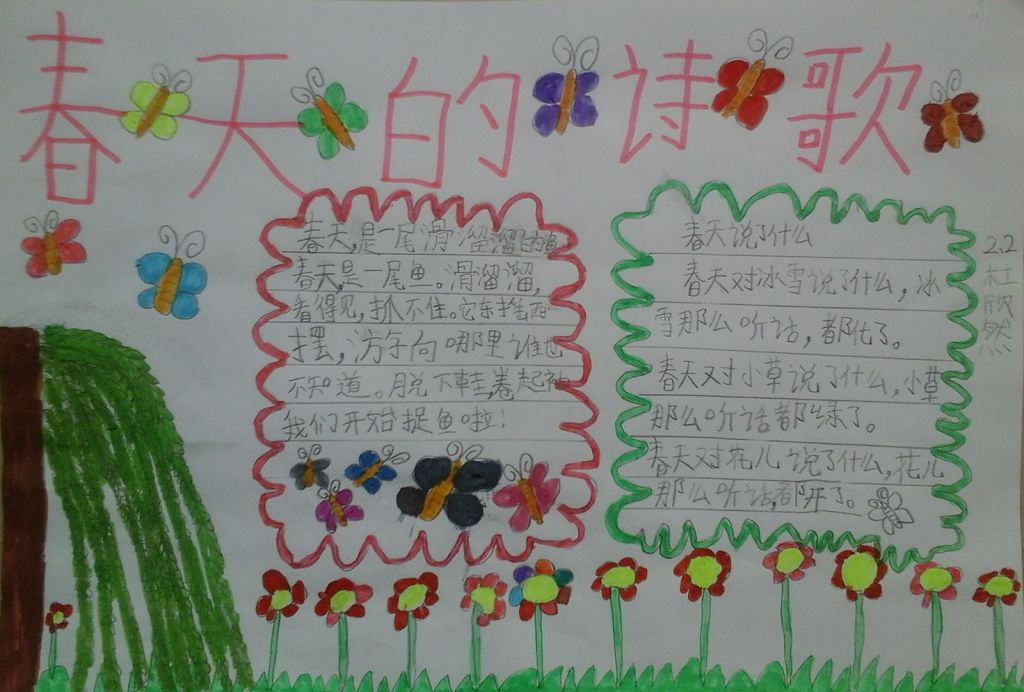 春天的诗歌
春天,是一尾滑溜溜的鱼
春天是一尾鱼。滑溜溜,
看得见,抓不住。它东摇西
摆,游向哪里谁也
不知道。脱下鞋,卷起袖
我们开始捉鱼啦!
春天说了什么
春天对冰雪说了什么,冰
雪那么听话,都化了。
春天对小草说了什么,小草
那么听话都绿了。
春天对花儿说了什么,花儿
那么听话,都开了。
2.2
杜欣然